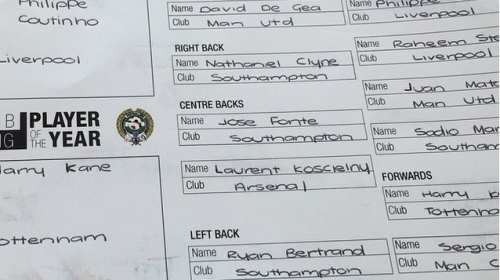 Philippe
Coutinho
Liverpool
PLAYER
OF THE YEAR
Harry Kane
Name David De Gea
Club Man Utd
RIGHT BACK
Name Nathaniel Clyne
Club Southampton
CENTRE BACKS
Name Jose Fonte
Club Southampton
Name Laurent Koscielny
Club Arsenal
LEFT BACK
Name Ryan Bertrand
Club Southampton
Name
Club Liverpool
Name Raheem
Club Liverpool
Name Juan
Club Man Utd
Name Sadio
Club
FORWARDS
Name Harry
Club
Name Sergio
Club Man